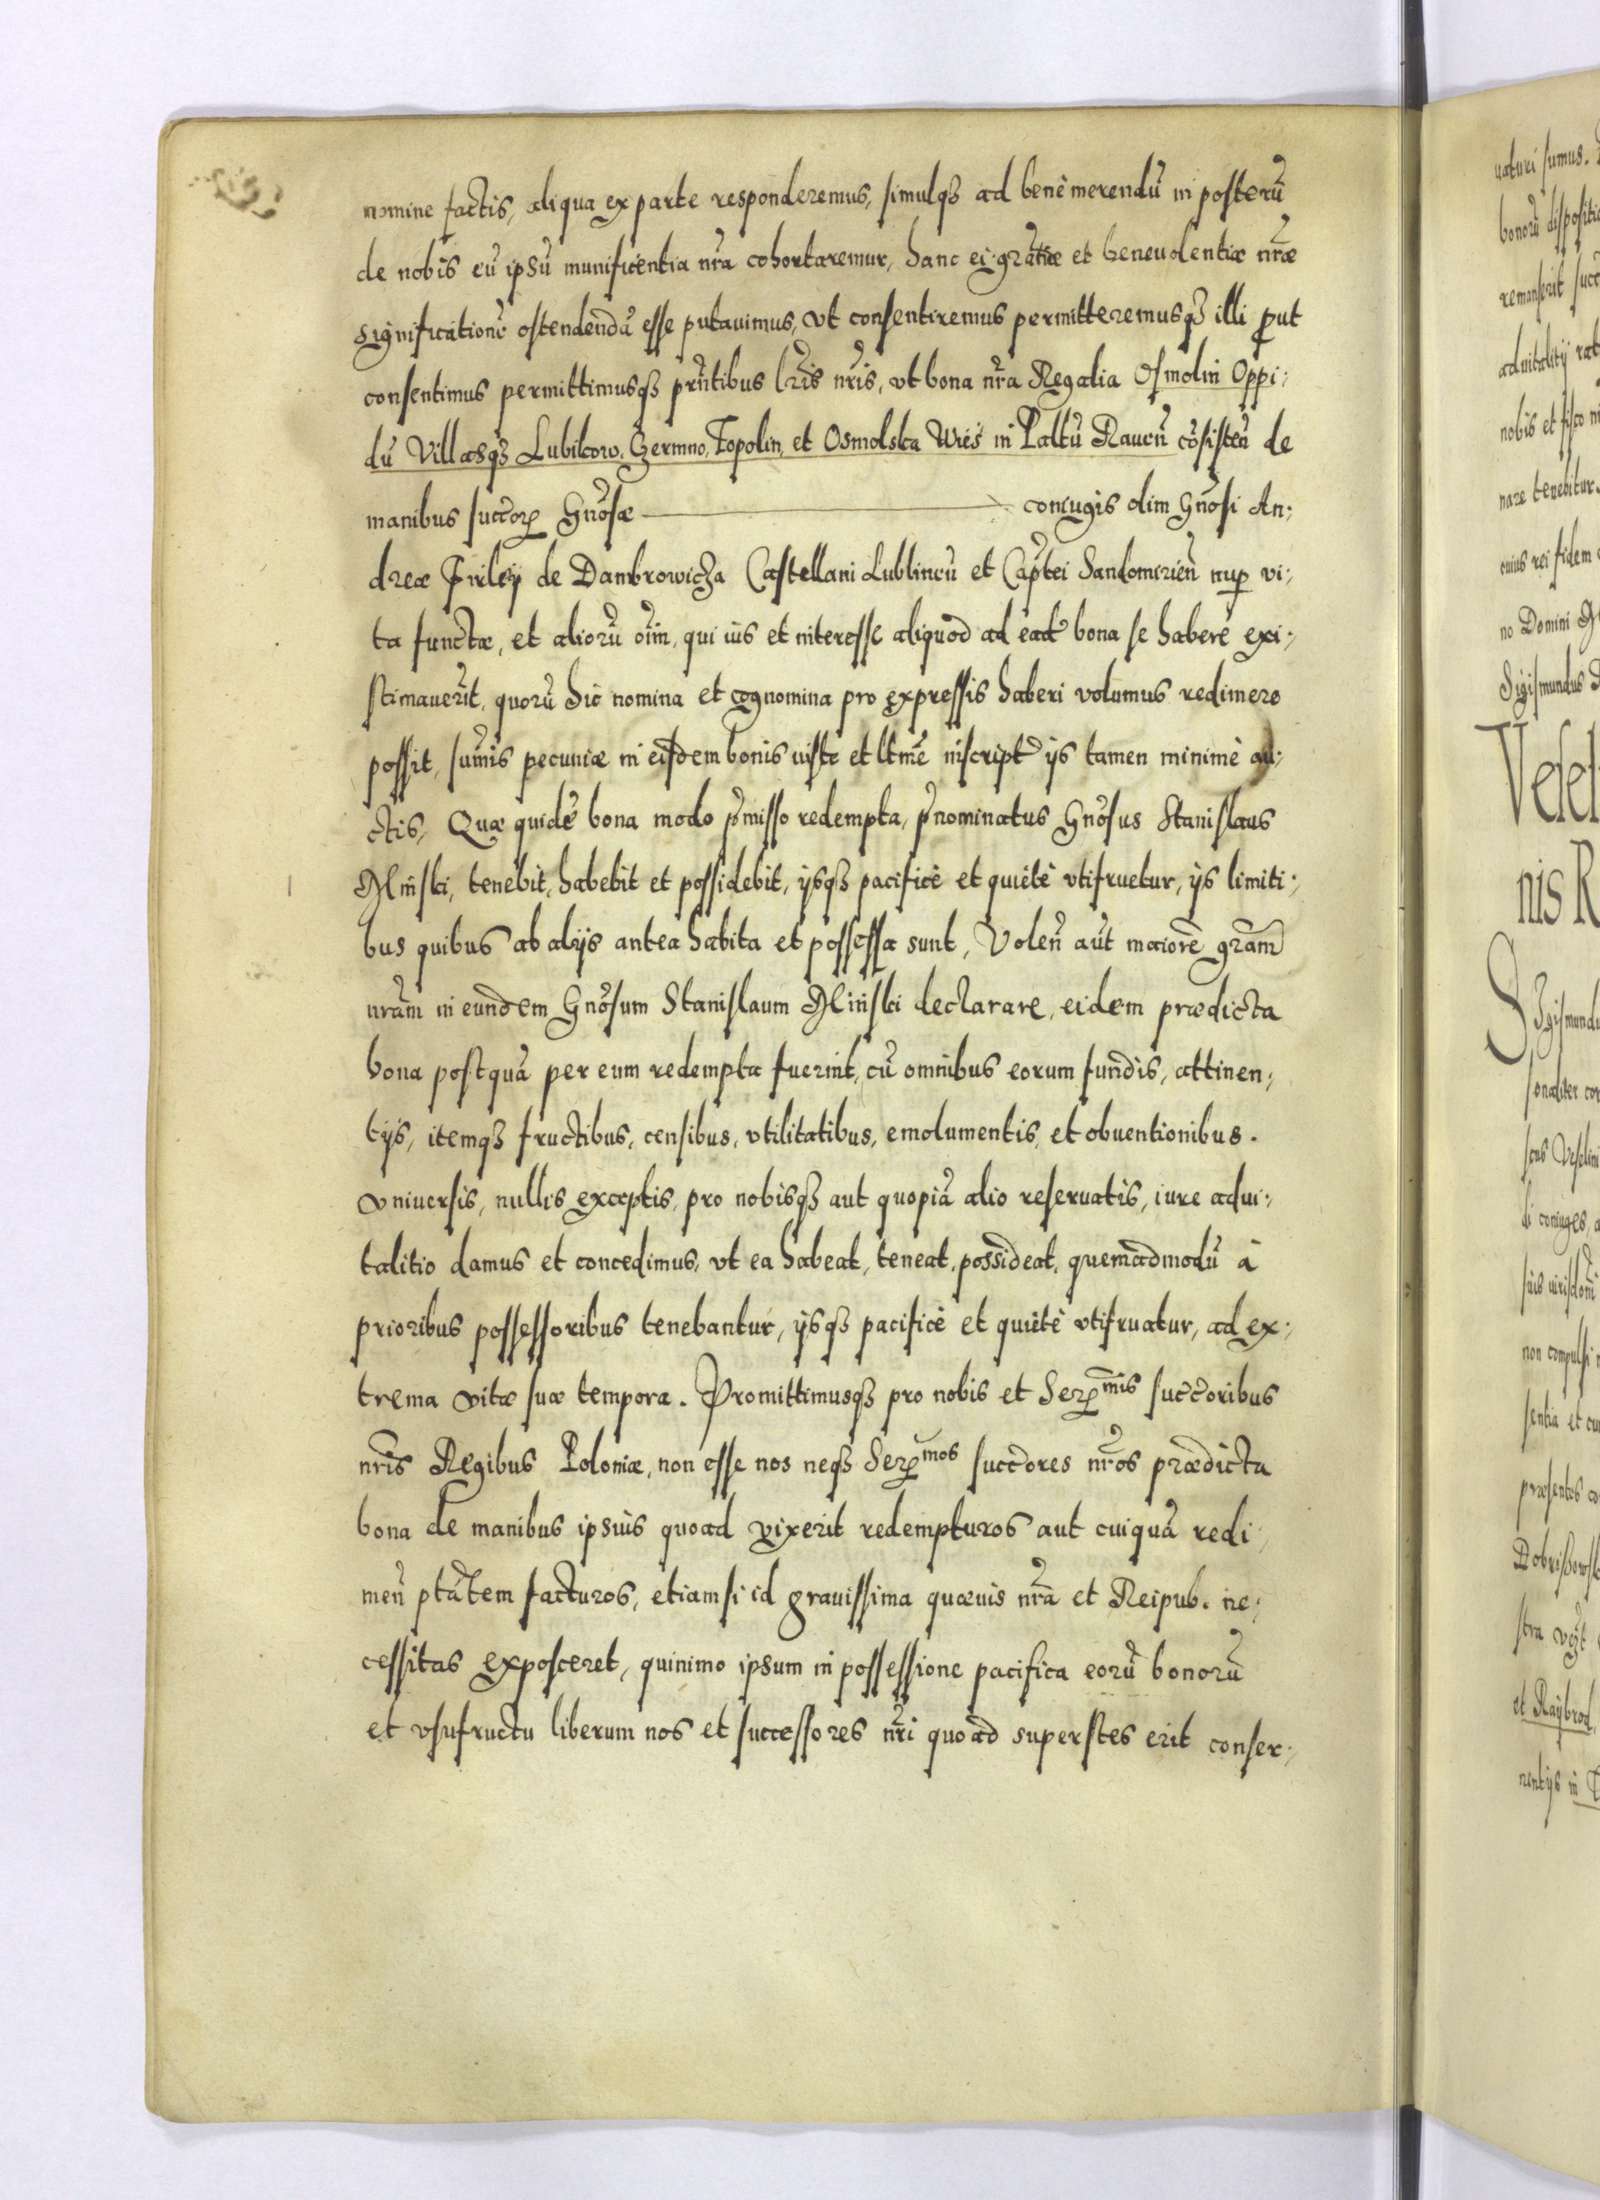 nomine factis, aliqua ex parte responderemus, simulqȝ ad benè merendū in posterū
de nobis eū ipsū munificentia nr̄a cohortaremur, hanc ei gratiæ et beneuolentiæ nr̄æ
significationē ostendendā esse putauimus, vt consentiremus permitteremusqȝ illi ꝓut
consentimus permittimusqȝ prn̄tibus lr̄is nr̄is, vt bona nr̄a Regalia Osmolin Oppi:
dū Villasqȝ Lubikow, Czermno, Topolin, et Osmolska Wies in Pałtū Rauen̄ cōsisten̄ de
manibus succorꝝ Gn̄osæ coniugis olim Gn̄osi An:
dreæ Firleij de Dambrowicza Castellani Lublineñ et Capt̄ei Sandomirien̄ nuꝑ vi:
ta functæ, et aliorū om̄, qui ius et interesse aliquod ad ead̄ bona se habere exi:
stimauerit, quorū hic nomina et cognomina pro expressis haberi volumus redimere
possit, sum̄is pecuniæ in eisdem bonis iuste et ltm̄e inscript̄ ijs tamen minimè au:
ctis, Quæ quidē bona modo p̄misso redempta, p̄nominatus Gn̄osus Stanislaus
Minski, tenebit, habebit et possidebit, ijsqȝ pacificè et quietè vtifruetur, ijs limiti:
bus quibus ab alijs antea habita et possessa sunt, Volen̄ aūt maiorē gr̄am
nr̄am in eundem Gn̄osum Stanislaum Minski declarare, eidem prædicta
bona postquā per eum redempta fuerint, cū omnibus eorum fundis, attinen:
tijs, itemqȝ fructibus, censibus, vtilitatibus, emolumentis, et obuentionibus.
vniuersis, nullis exceptis, pro nobisqȝ aut quopiā alio reseruatis, iure adui:
talitio damus et concedimus, vt ea habeat, teneat, possideat, quemadmodū à
prioribus possessoribus tenebantur, ijsqȝ pacificè et quietè vtifruatur, ad ex:
trema vitæ suæ tempora. Promittimusqȝ pro nobis et Serꝑmis succ̄oribus
nr̄is Regibus Poloniæ, non esse nos neqȝ Serꝑmos succ̄ores nr̄os prædicta
bona de manibus ipsius quoad vixerit redempturos aut cuiquā redi:
men̄ pt̄atem facturos, etiamsi id grauissima quæuis nr̄a et Reipub. ne:
cessitas exposceret, quinimo ipsum in possessione pacifica eorū bonorū
et vsufructu liberum nos et successores nr̄i quoad superstes erit conser: